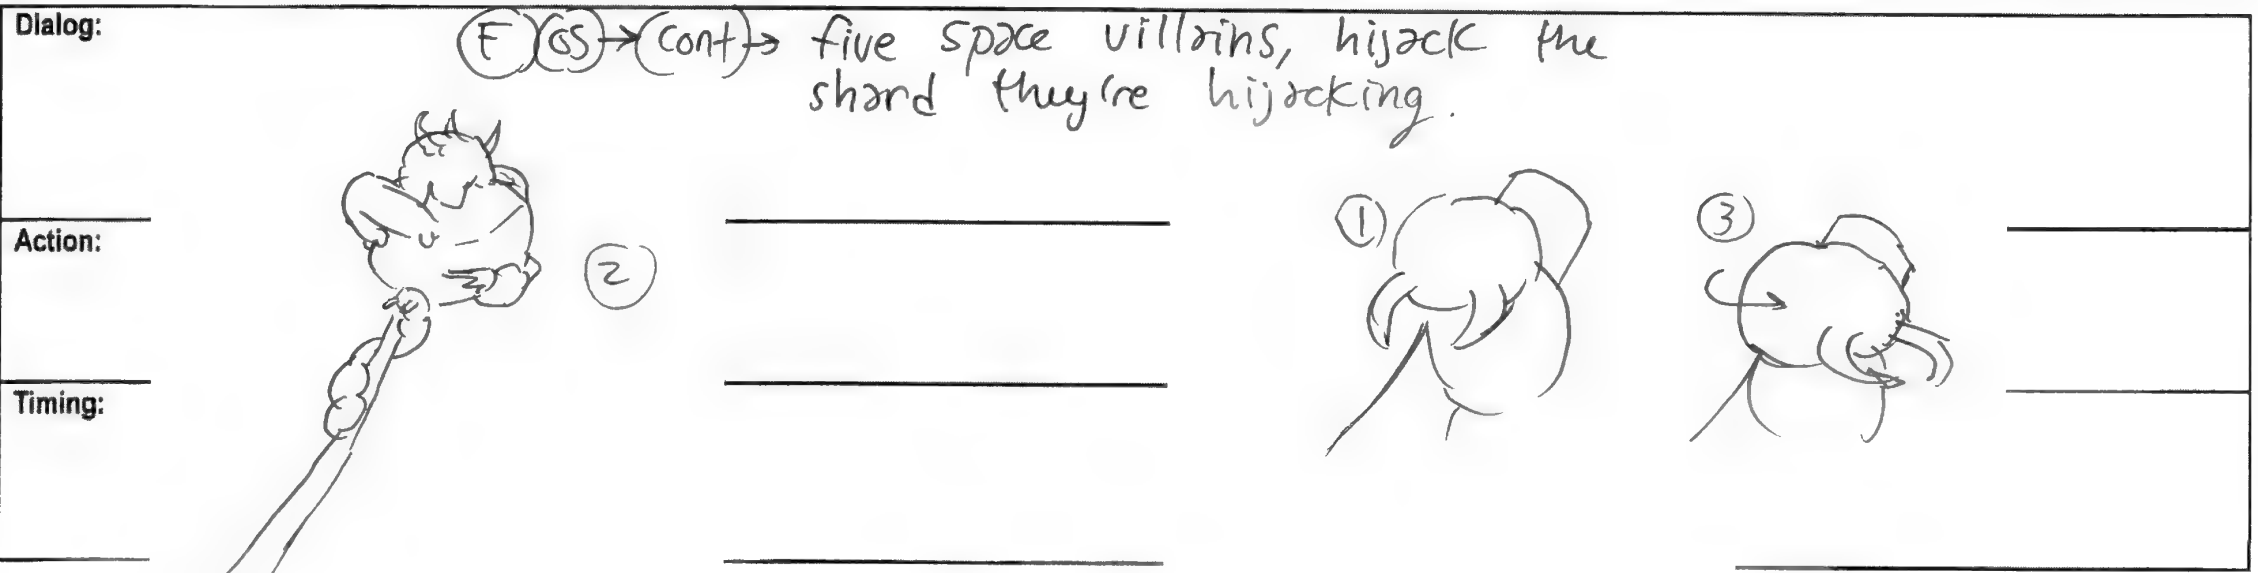 Dialog:
F GS → Cont → five space villains, hijack the
shard they're hijacking.
1
3
Action:
2
Timing: